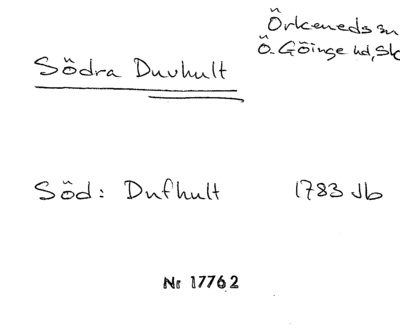 Örkeneds sn
Ö. Göinge hd, Sk
Södra Duvhult
Söd: Dufhult 1783 Jb
Nr 17762